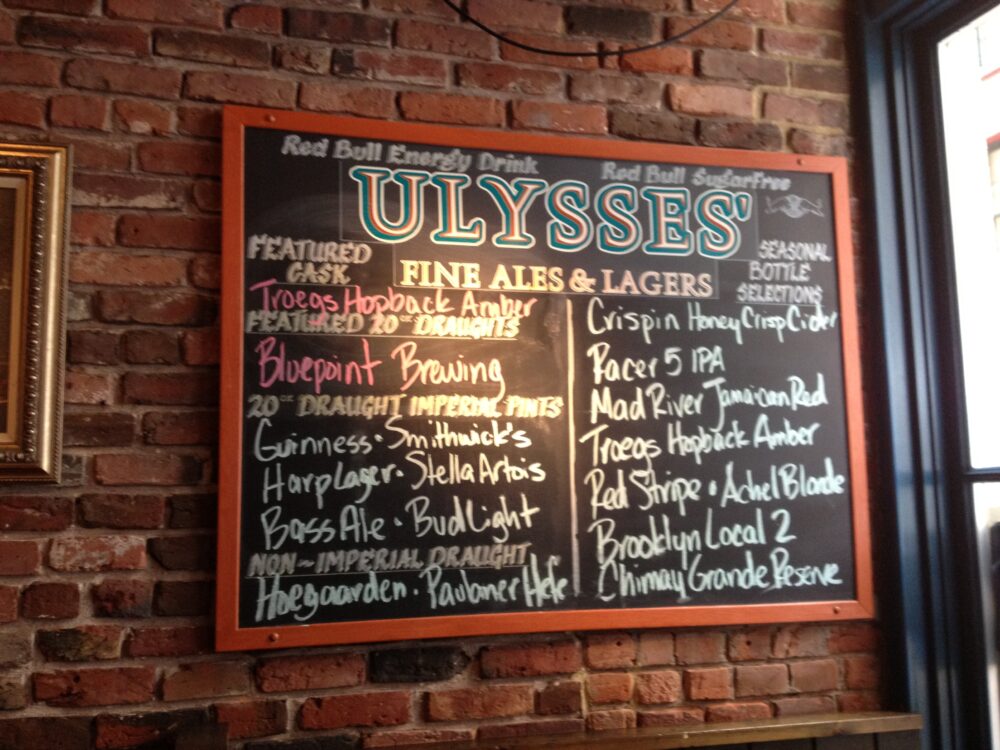 Red Bull Energy Drink Red Bull SugarFree
ULYSSES'
FINE ALES & LAGERS
FEATURED
CASK
Troegs Hopback Amber
FEATURED 20 oz DRAUGHTS
Bluepoint Brewing
20 oz DRAUGHT IMPERIAL PINTS
Guinness · Smithwick's
Harp Lager · Stella Artois
Bass Ale · Bud Light
NON-IMPERIAL DRAUGHT
Hoegaarden · Paulaner Hefe
SEASONAL
BOTTLE
SELECTIONS
Crispin Honey Crisp Cider
Racer 5 IPA
Mad River Jamaican Red
Troegs Hopback Amber
Red Stripe · Achel Blonde
Brooklyn Local 2
Chimay Grande Reserve